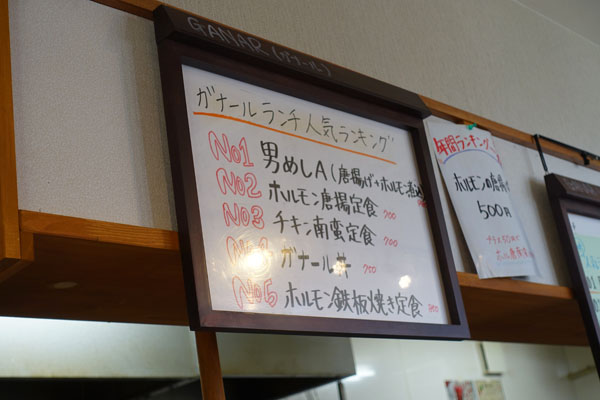 GANAR (ガナール)
ガナールランチ人気ランキング
No1 男めしA(唐揚げ+ホルモン煮込
No2 ホルモン唐揚定食 700
No3 チキン南蛮定食 700
No4 ガナール丼 750
No5 ホルモン鉄板焼き定食
年間ランキング
ホルモンの唐揚げ
500円
プラス50円で